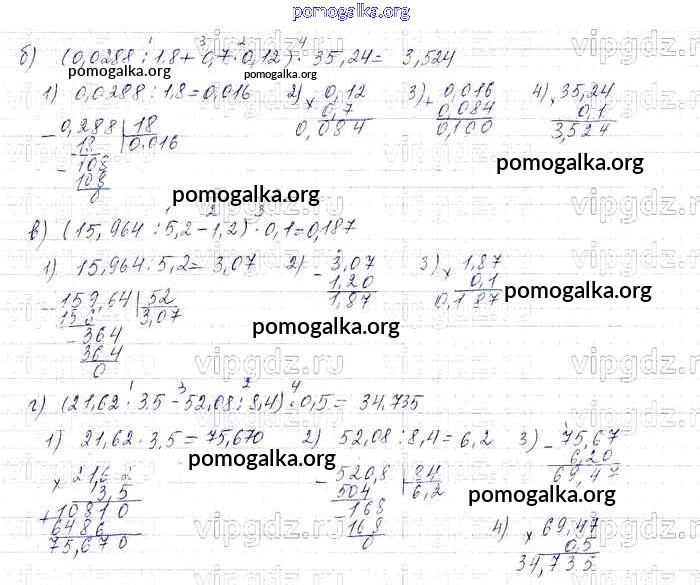 pomogalka.org
б) (0,0288 : 1,8 + 0,7 · 0,12) · 35,24 = 3,524
pomogalka.org
pomogalka.org
1) 0,0288 : 1,8 = 0,016
2) × 0,12
0,7
0,084
3) + 0,016
0,084
0,100
4) × 35,24
0,1
3,524
- 0,288 | 18
18 0,016
- 108
108
0
pomogalka.org
pomogalka.org
в) (15,964 : 5,2 - 1,2) · 0,1 = 0,187
1) 15,964 : 5,2 = 3,07
2) - 3,07
1,20
1,87
3) × 1,87
0,1
0,187
pomogalka.org
- 159,64 | 52
156 3,07
- 364
364
0
pomogalka.org
г) (21,62 · 3,5 - 52,08 : 8,4) · 0,5 = 34,735
1) 21,62 · 3,5 = 75,670
2) 52,08 : 8,4 = 6,2
3) - 75,67
6,20
69,47
pomogalka.org
× 21,62
3,5
+ 10810
6486
75,670
- 520,8 | 84
504 6,2
- 168
168
0
pomogalka.org
4) × 69,47
0,5
34,735
vipgdz.ru